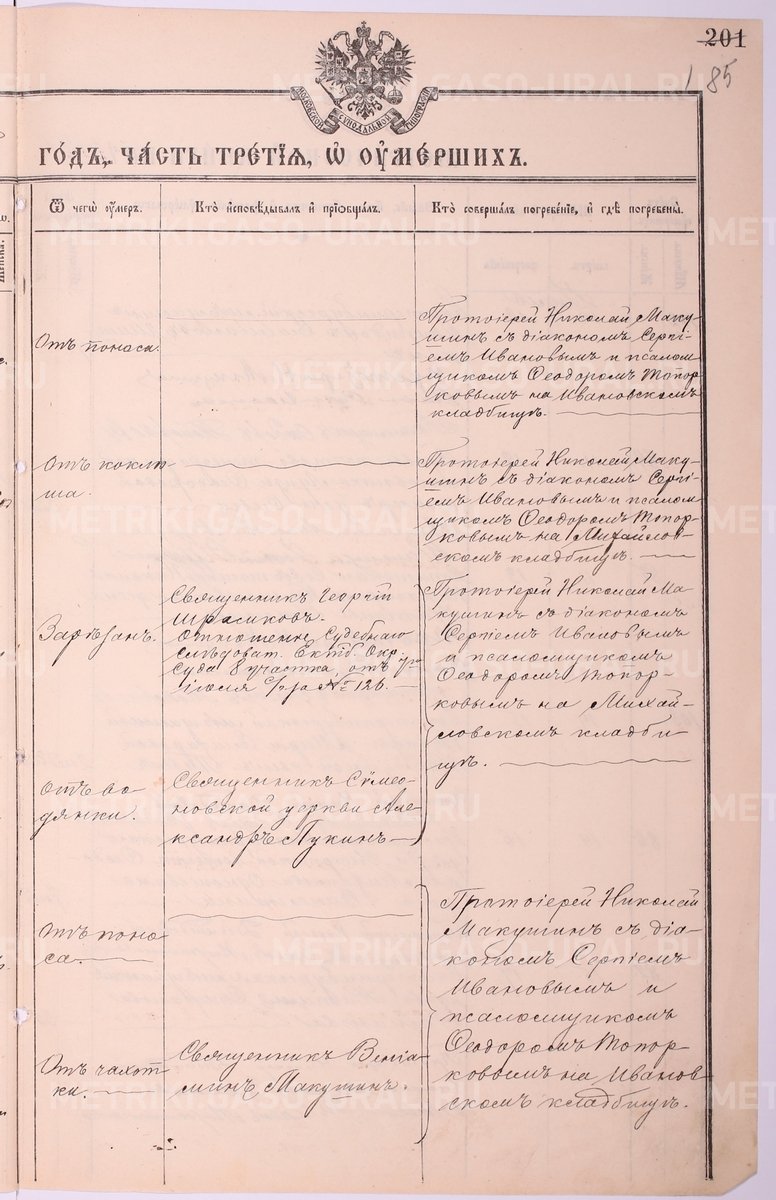 201
185
МОСКОВСКОЙ СѴНОДАЛЬНОЙ ТИПОГРАФІИ
ГО́ДЪ, ЧА́СТЬ ТРЕ́ТІЯ, Ѡ҆ ОУ҆МЕ́РШИХЪ.
Ѿ чегѡ̀ ᲂу҆́меръ.
Кто̀ и҆сповѣ́дывалъ и҆ прїѡбща́лъ.
Кто̀ соверша́лъ погребе́нїе, и҆ гдѣ̀ погребены̀.
Отъ поноса.
Протоіерей Николай Маку-
шинъ съ діакономъ Сергі-
емъ Ивановымъ и псалом
щикомъ Ѳеодоромъ Топор
ковымъ на Ивановскомъ
кладбищѣ.
Отъ коклю
ша.
Протоіерей Николай Маку-
шинъ съ діакономъ Сергі-
емъ Ивановымъ и псалом
щикомъ Ѳеодоромъ Топор-
ковымъ на Михайлов-
скомъ кладбищѣ.
Зарѣзанъ.
Священникъ Георгій
Отношеніе Судебнаго
Слѣдоват. Ектб. Окр.
Суда 8 участка, отъ 7го
іюля с/го № 126.
Протоіерей Николай Ма
кушинъ съ діакономъ
Сергіемъ Ивановымъ
и псаломщикомъ
Ѳеодоромъ Топор-
ковымъ на Михай-
ловскомъ кладби-
щѣ.
Отъ во
дянки.
Священникъ Сѵмео-
новской церкви Але-
ксандръ Лукинъ
Отъ поно
са.
Протоіерей Николай
Макушинъ съ діа-
кономъ Сергіемъ
Ивановымъ и
псаломщикомъ
Ѳеодоромъ Топор-
ковымъ на Иванов
скомъ кладбищѣ.
Отъ чахот
ки.
Священникъ Веніа
минъ Макушинъ.
METRIKI.GASO-URAL.RU